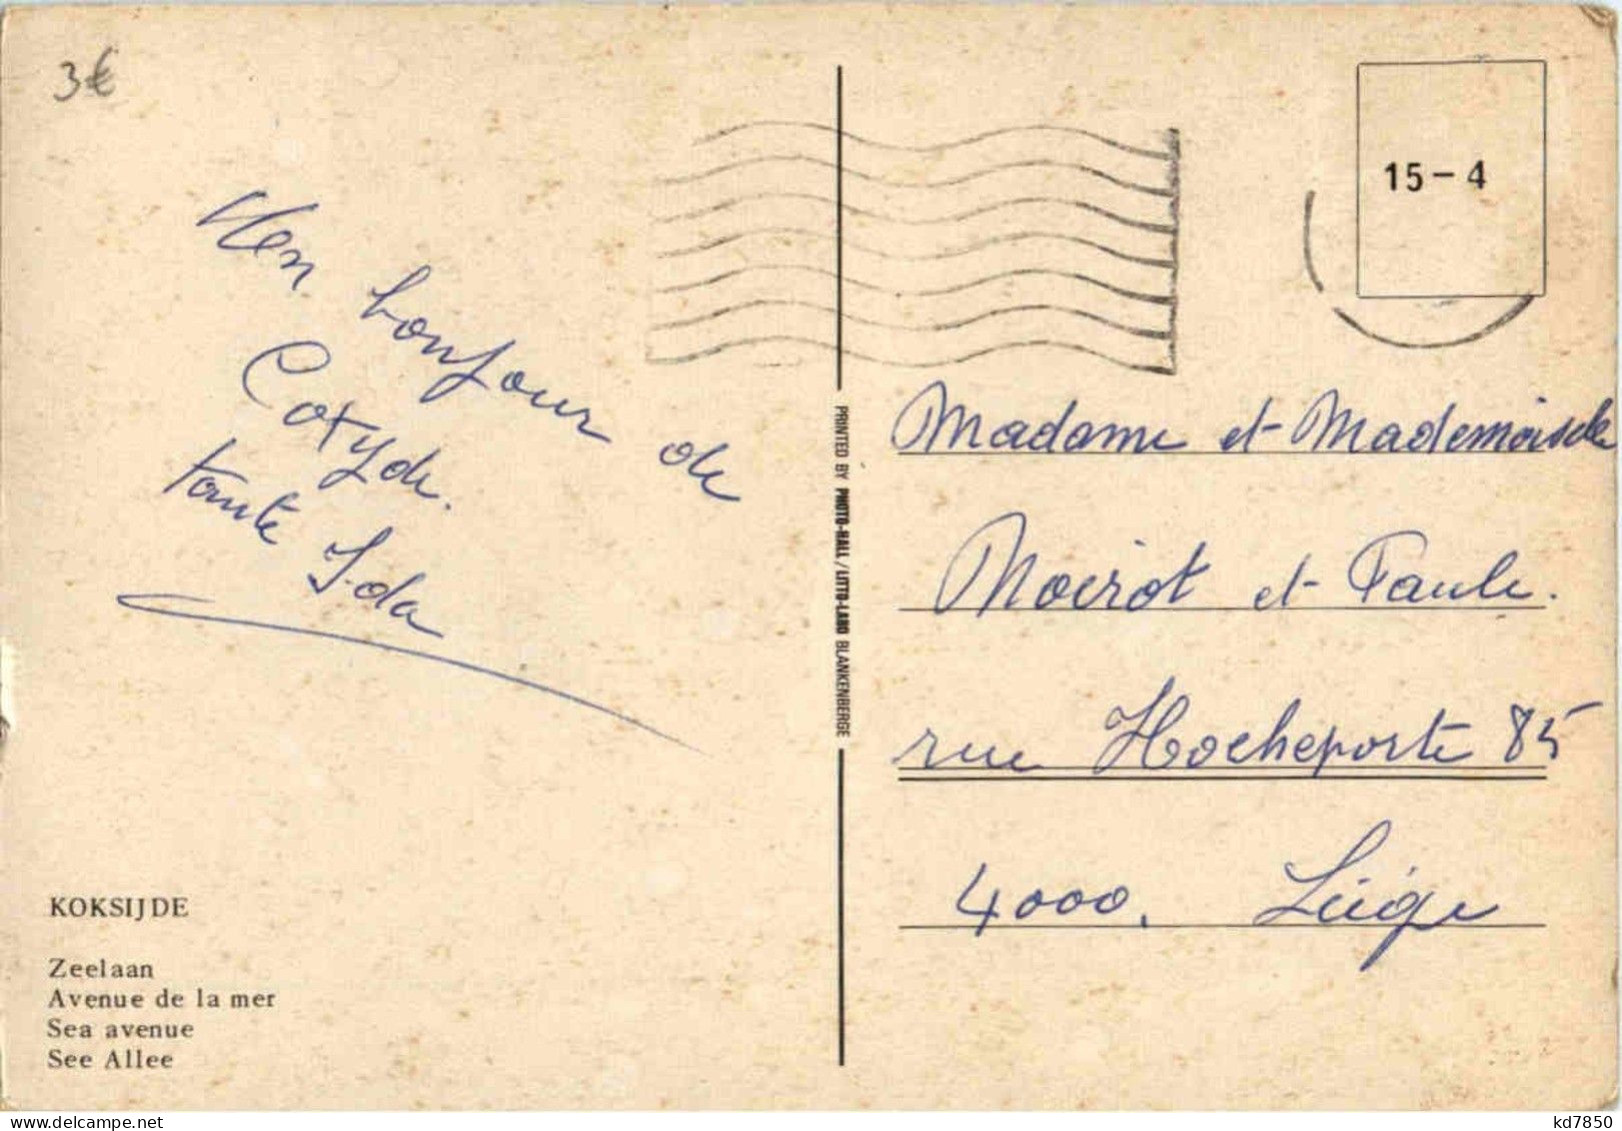 3€
Un bonjour de
Coxyde.
tante Ida
KOKSIJDE
Zeelaan
Avenue de la mer
Sea avenue
See Allee
PRINTED BY PHOTO-HALL / LITTO-LABO BLANKENBERGE
15-4
Madame et Mademoiselle
Moirot et Paule.
rue Hocheporte 85
4000. Liège
kd7850